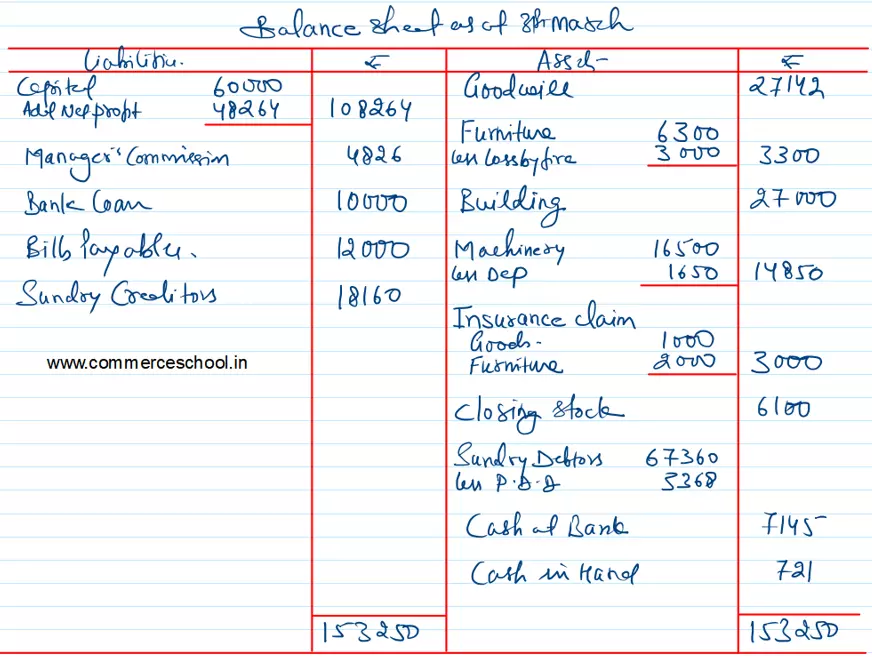 Balance Sheet as at 31st March
Liabilities. ₹ Assets ₹
Capital 60000
Add Net profit 48264 108264
Manager's Commission 4826
Bank Loan 10000
Bills Payables. 12000
Sundry Creditors 18160
www.commerceschool.in
153250
Goodwill 27142
Furniture 6300
less loss by fire 3000 3300
Building 27000
Machinery 16500
less Dep 1650 14850
Insurance claim
Goods- 1000
Furniture 2000 3000
Closing Stock 6100
Sundry Debtors 67360
less P.B.D 3368
Cash at Bank 7145
Cash in Hand 721
153250